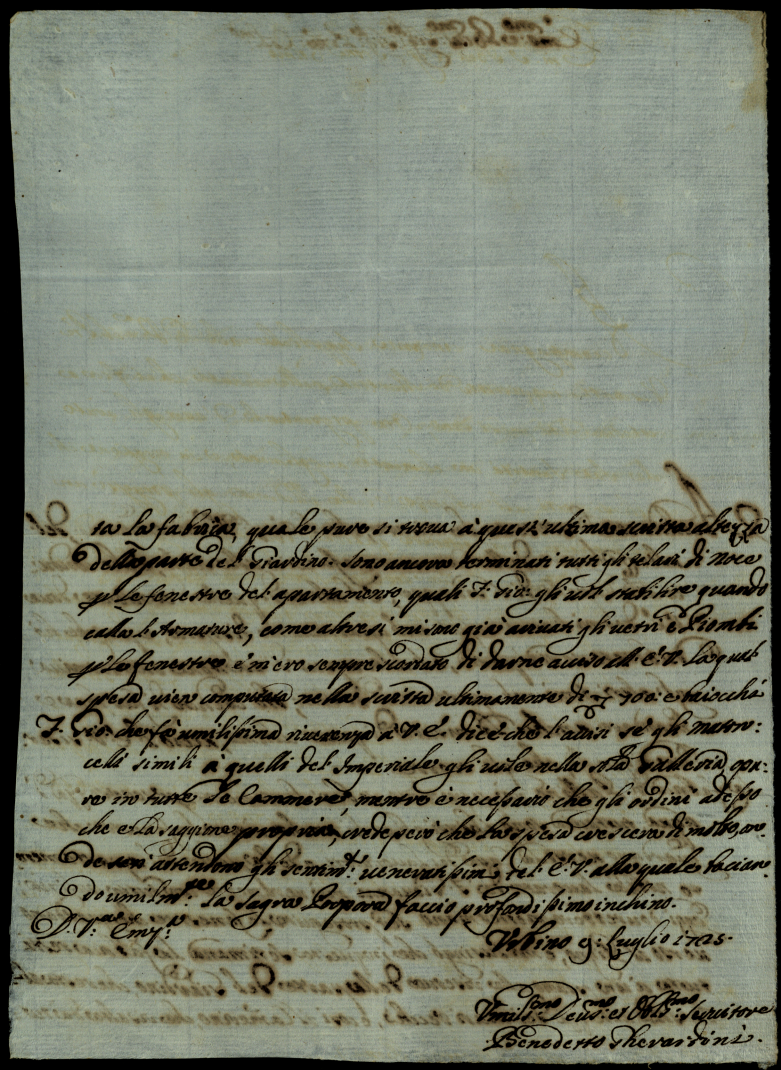 ta la fabrica, quale pure si trova à quest'ultima scritta altezza
della parte del Giardino. Sono ancora terminati tutti gli telari di Noce
p le fenestre del apartamento, quali F. Gio: gli vol stabilire quando
calla l'Armature, come altresi mi sono già arivati gli vetri e Piombi
p le fenestre e m'ero sempre scordato di darne aviso all' E. V. La qual
spesa vien computata nella scritta ultimamente di 700 e baiocchi
F. Gio. che fà umilissima riverenza à V. E. dice che l'avisi se gli matton:
celli simili a quelli del Imperiale gli vole nella sola Galleria opu:
re in tutte le Cammere, mentre è necessario che gli ordini adesso
che è la staggione propria, crede però che la spesa crescerà di molto, on:
de sen' attendono gli sentim.ti veneratissimi del E. V. alla quale bacian:
do umilm.te la Sagra Porpora faccio profondissimo inchino.
D. V. Em.za
Urbino 9: Luglio 1725.
Umiliss.mo Deu.mo et Obl.mo Servitore
Benedetto Gherardini.